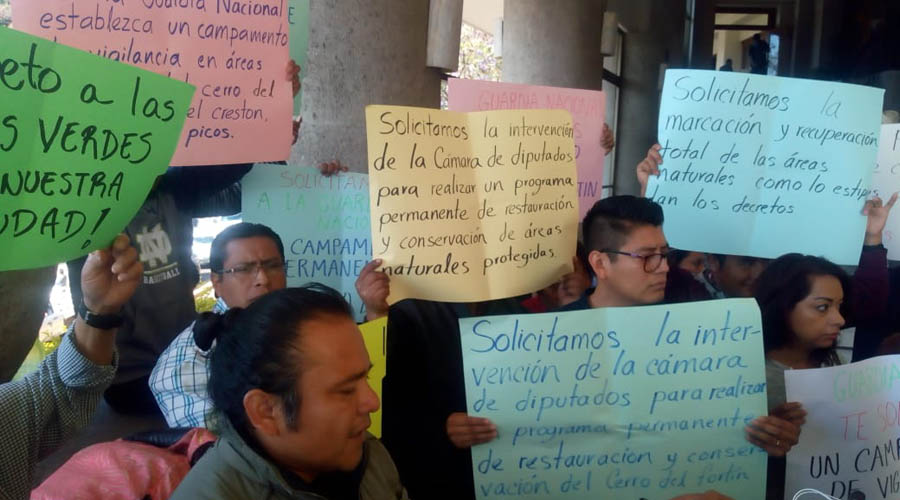 Guardia Nacional
establezca un campamento
vigilancia en áreas
cerro del
el creston,
picos.
eto a las
S VERDES
NUESTRA
DAD!
SOLICITAMOS
A LA GUAR
NACIO
CAMPAM
PERMANE
Solicitamos la intervención
de la Cámara de diputados
para realizar un programa
permanente de restauración
y conservación de áreas
naturales protegidas.
GUARDIA NACIONAL
TIN
Solicitamos la
marcación y recuperación
total de las áreas
naturales como lo estip
an los decretos
Solicitamos la inter-
vención de la cámara
de diputados para realizar
programa permanente
de restauración y conser
vación del Cerro del fortín
GUARDIA
TE SO
UN CAMP
DE VIG